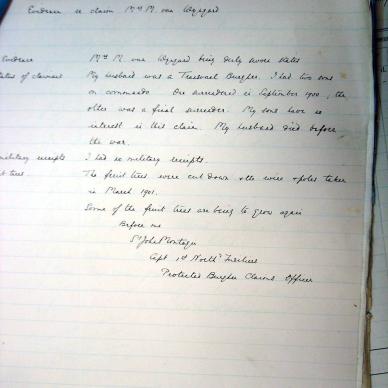 Evidence re claim Mrs M. van Wyngard
Evidence Mrs M. van Wyngard being duly sworn states
status of claimant My husband was a Transvaal Burgher. I had two sons
on commando. One surrendered in September 1900, the
other was a final surrender. My sons have no
interest in this claim. My husband died before
the war.
military receipts I had no military receipts.
trees. The fruit trees were cut down & the wire & poles taken
in March 1901.
Some of the fruit trees are being to grow again
Before me
St John Montagu
Capt 1st North'd Fusiliers
Protected Burgher Claims Officer